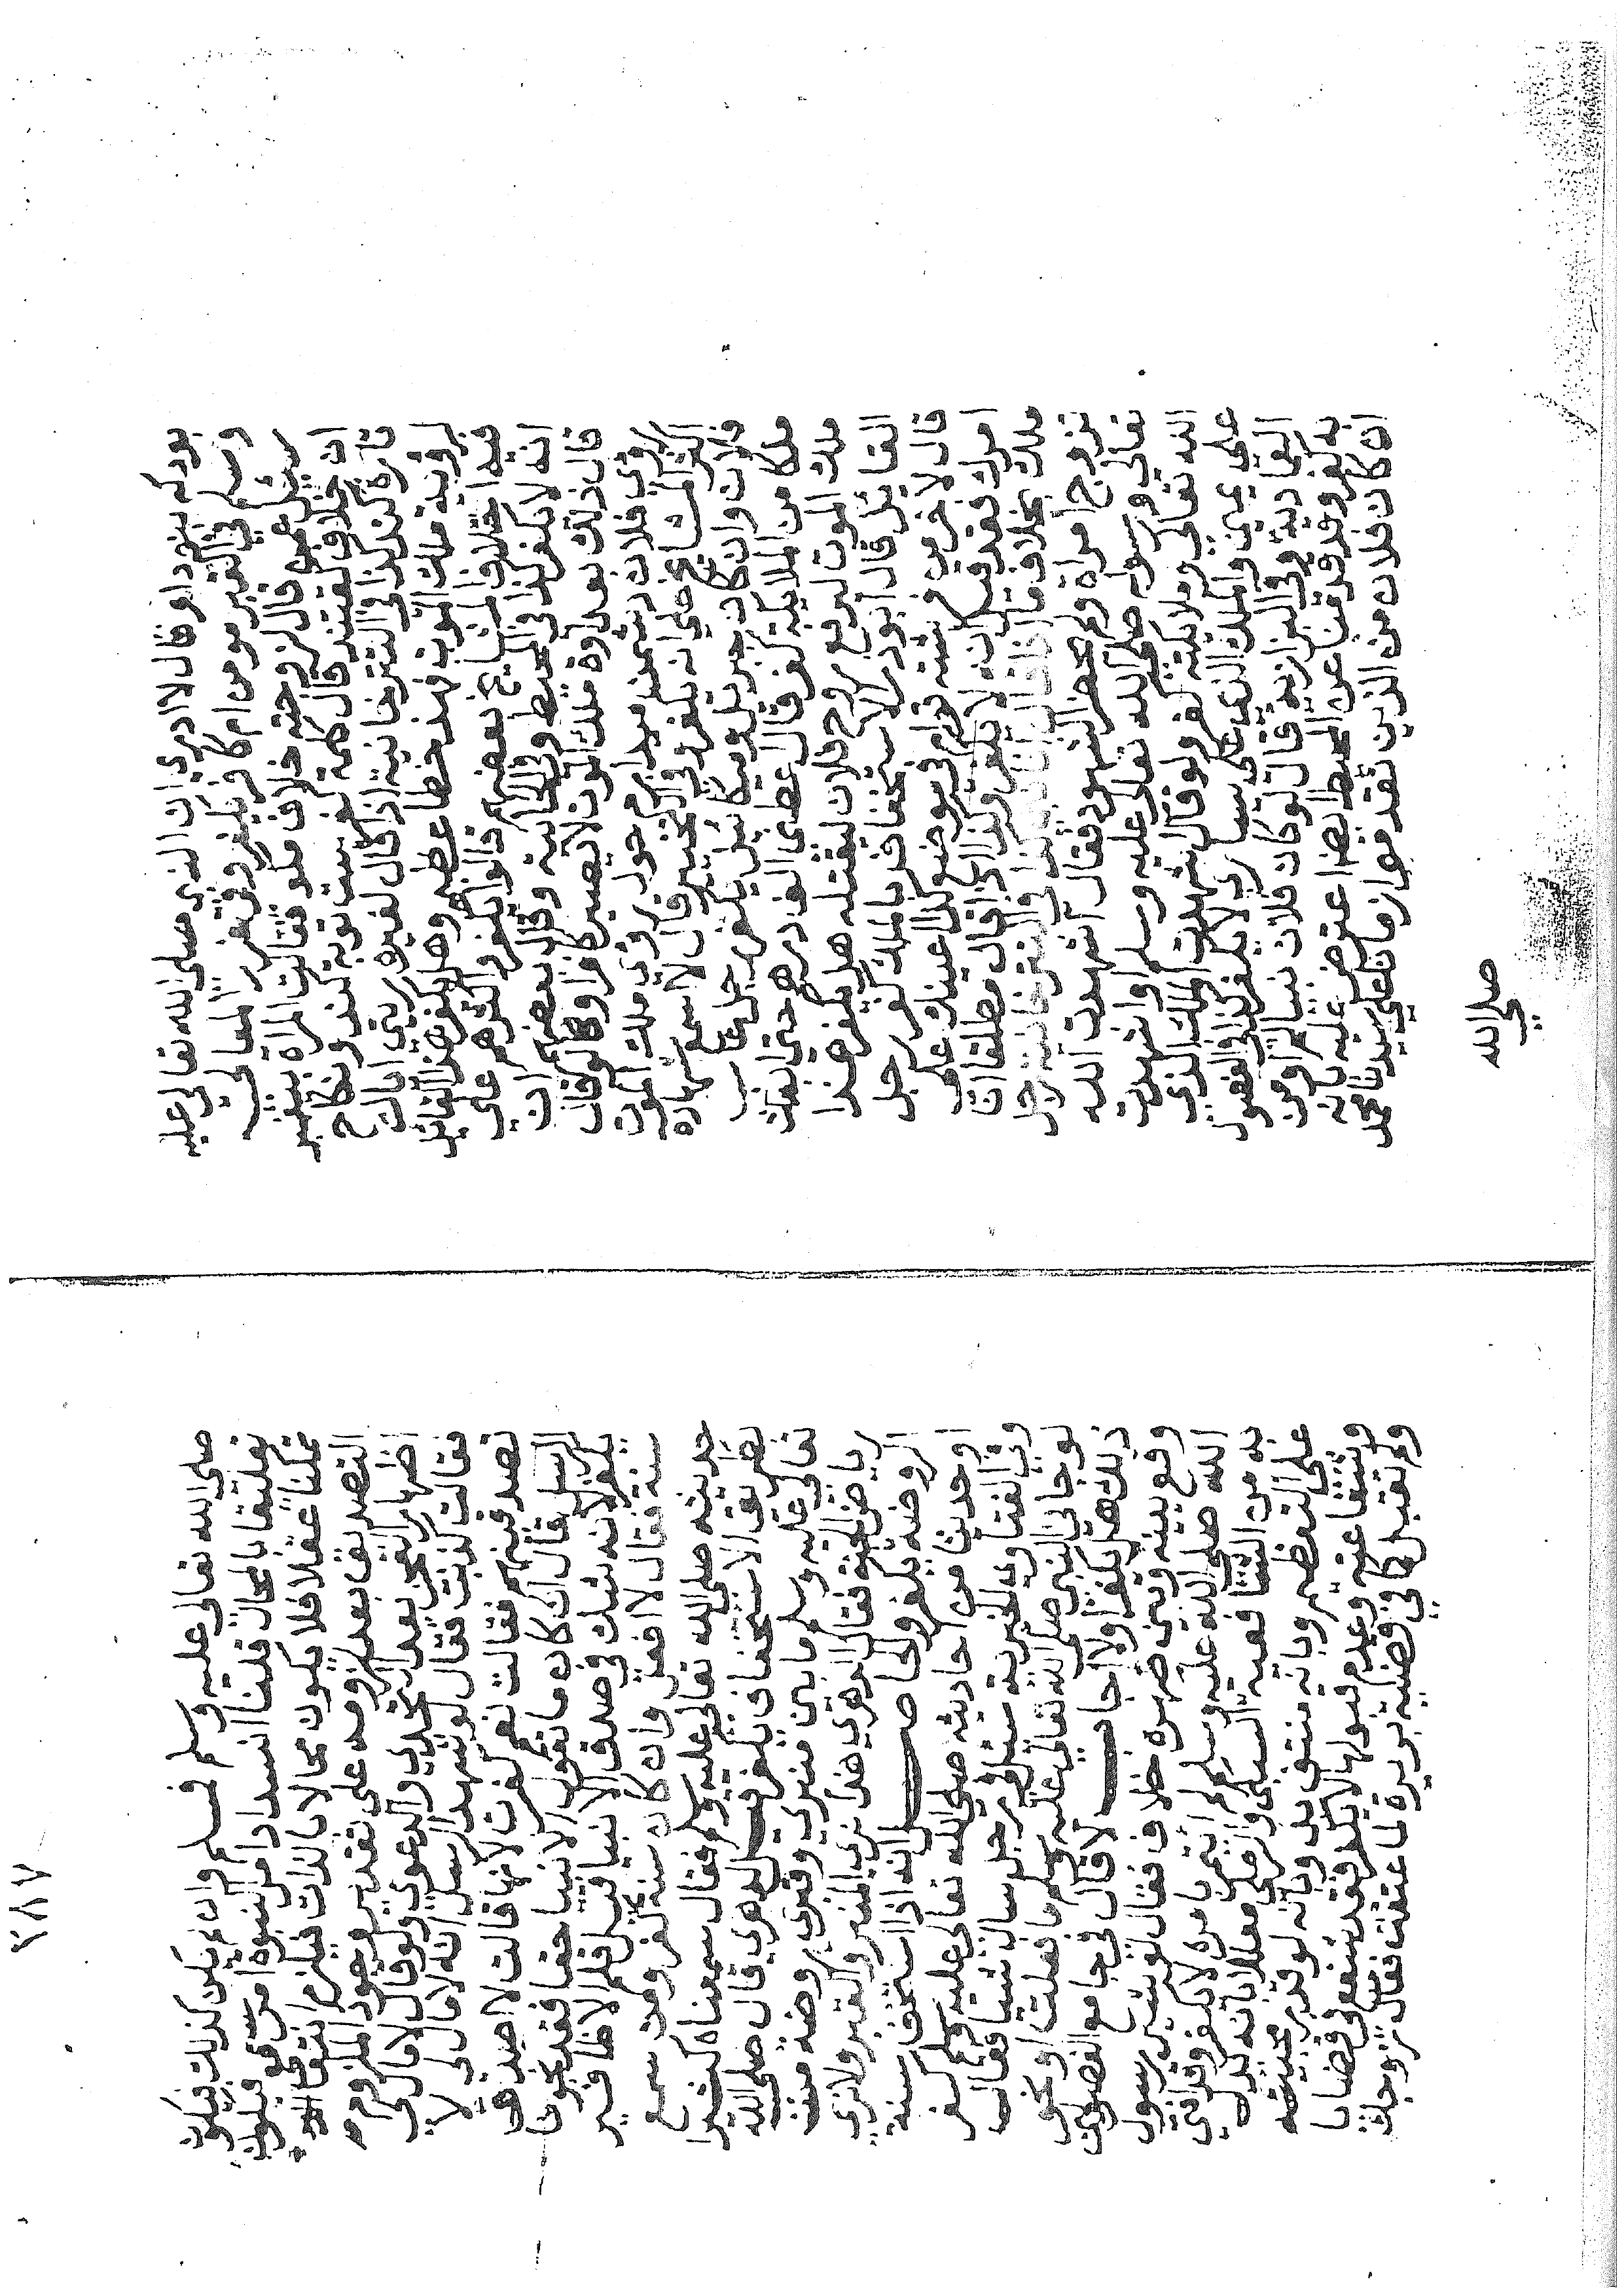 بودكه بنجد او قال لا ادري ان النبي صلى الله تعالى عليه
وسلم في القبر مومن ام كافر يكفر وفي غرر المعاني
سئل عمن قال لزوجته خلاف مكو فقالت المراة بيغمبر
ان خلاف گفتند قال كلمة كفر ست توبة كند ونكاح
تازه كند كذا في التترخانية اذا قال لغيره ريتي اياك
كروية ملك الموت فهذا خطا عظيم وهل يكفر هذا القائل
فيه اختلاف المشايخ بعضهم قالوا يكفر واكثرهم على
انه لا يكفر كذا في المحيط وفي الخانية وقال بعضهم ان
قال ذلك لعداوة ملك الموت يصير كافرا وكا لو قال
روي فلان دشمن ميدارم جون روي ملك الموت
اكثر المشايخ على انه يكفر وفي التخيير قال لا اسمع شهادة
فلان وان كان جبريل وميكائيل يكفر رجل عاب
ملكا من الملايكة كفر قال اعطى الف درهم حتى ابعث
ملك الموت ليرفع روح فلان ليقتله هل يكفر هذا
القائل قال ابو ذر الاستخفاف بالملك كفر رجل
قال لاخر من فرشته توام في موضع كذا اعينك على
امرك فقد قيل انه لا يكفر وكذا اذا قال مطلقا انا
ملك بخلاف ما اذا قال انا نبي كذا في التترخانية رجل
تزوج امراة ولم يحضر الشهود فقال اشهدت الله
تعالى ورسوله صلى الله تعالى عليه وسلم او اشهدت
الله تعالى وملايكته كفر ولو قال اشهدت الملك الذي
على يميني والملك الذي على يساري لا يكفر كذا في الفصول
العمادية وفي البزازية قال لو كان فلان نبيا لم اومن
به كفر وقد قدمنا عن المحيط ايضا اعترض عليه بانه
ان كان فلان من الذين تقدموا زمانا على سيدنا محمد
صلى الله
٢٨٧
صلى الله تعالى عليه وسلم فمسلم وان لم يكن كذلك فيكون
تعليقا بالمحال قلنا انسداد امر النبوة امر سمعي فيكون
ممكنا عقلا فلا يكون محالا بالذات فيلزم انتفاء
التصديق بعد لزومه على تقدير وجود الملزوم
اظهار المعجز بعد التحدي والدعوى ولو قال لامراتي
فقالت كذبت فقال لو شهد الرسل انه لا مال لي لا
تصدقينهم فقالت نعم كفرت لانها قالت لا اصدق
الرسل قال ان كان ما يقول الانبيا حقا فقد نجونا
يكفر لانه شك في صدق الانبيا قيل قلم الاظافير
سنة فقال لا افعل وان كان سنة كفر ومن سمع
حديثه صلى الله تعالى عليه وسلم فقال سمعناه كثيرا
بطريق الاستخفاف يكفر قيل لدهري قال صلى الله
تعالى عليه وسلم ما بين منبري وقبري روضة من
رياض الجنة فقال الدهري هذا نرى المنبر والقبر ولا نرى
الروضة يكفر والحاصل انه اذا استخف سنة
او حديثا من احاديثه صلى الله تعالى عليه وسلم كفر
وفي الفتاوى الخيرية سئل في رجل سال شيئا فقال
لو جاني النبي صلى الله تعالى عليه وسلم ما فعلت او نحو
ذلك هل يكفر اولا اجاب لا قال في جامع الفصولين
وقع بينه وبين صهره خلاف فقال لو بشير رسول
الله صلى الله عليه وسلم لم ائتمر بامره لا يكفر وقد افتى
به من الشافعية السبكي والرملي معللا بانه يدل
على التعظيم وبانه منتف بدل وبانه لو قدر مجيئه
وشفاعته وعدم قبولها لا يكفر فقد شفع في قضايا
ولم تقبل كما في قضية بريرة لما اعتقت فقال تزوجك